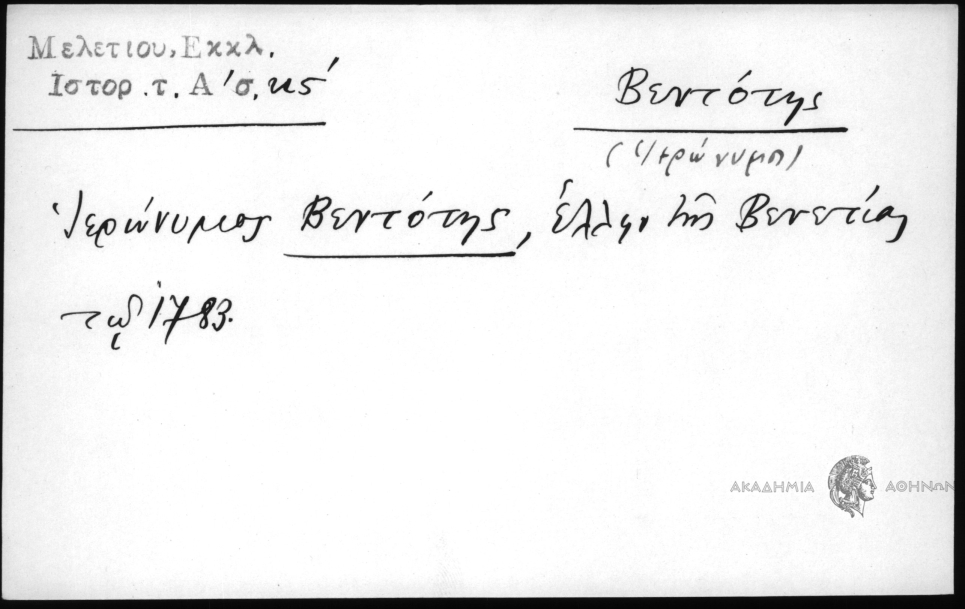 Μελετιου, Εκκλ.
Ιστορ. τ. Α' σ. κς'
Βεντότης
(Ἱερώνυμος)
Ἱερώνυμος Βεντότης, ἕλλην τῆς Βενετίας
τῷ 1783.
ΑΚΑΔΗΜΙΑ ΑΘΗΝΩΝ